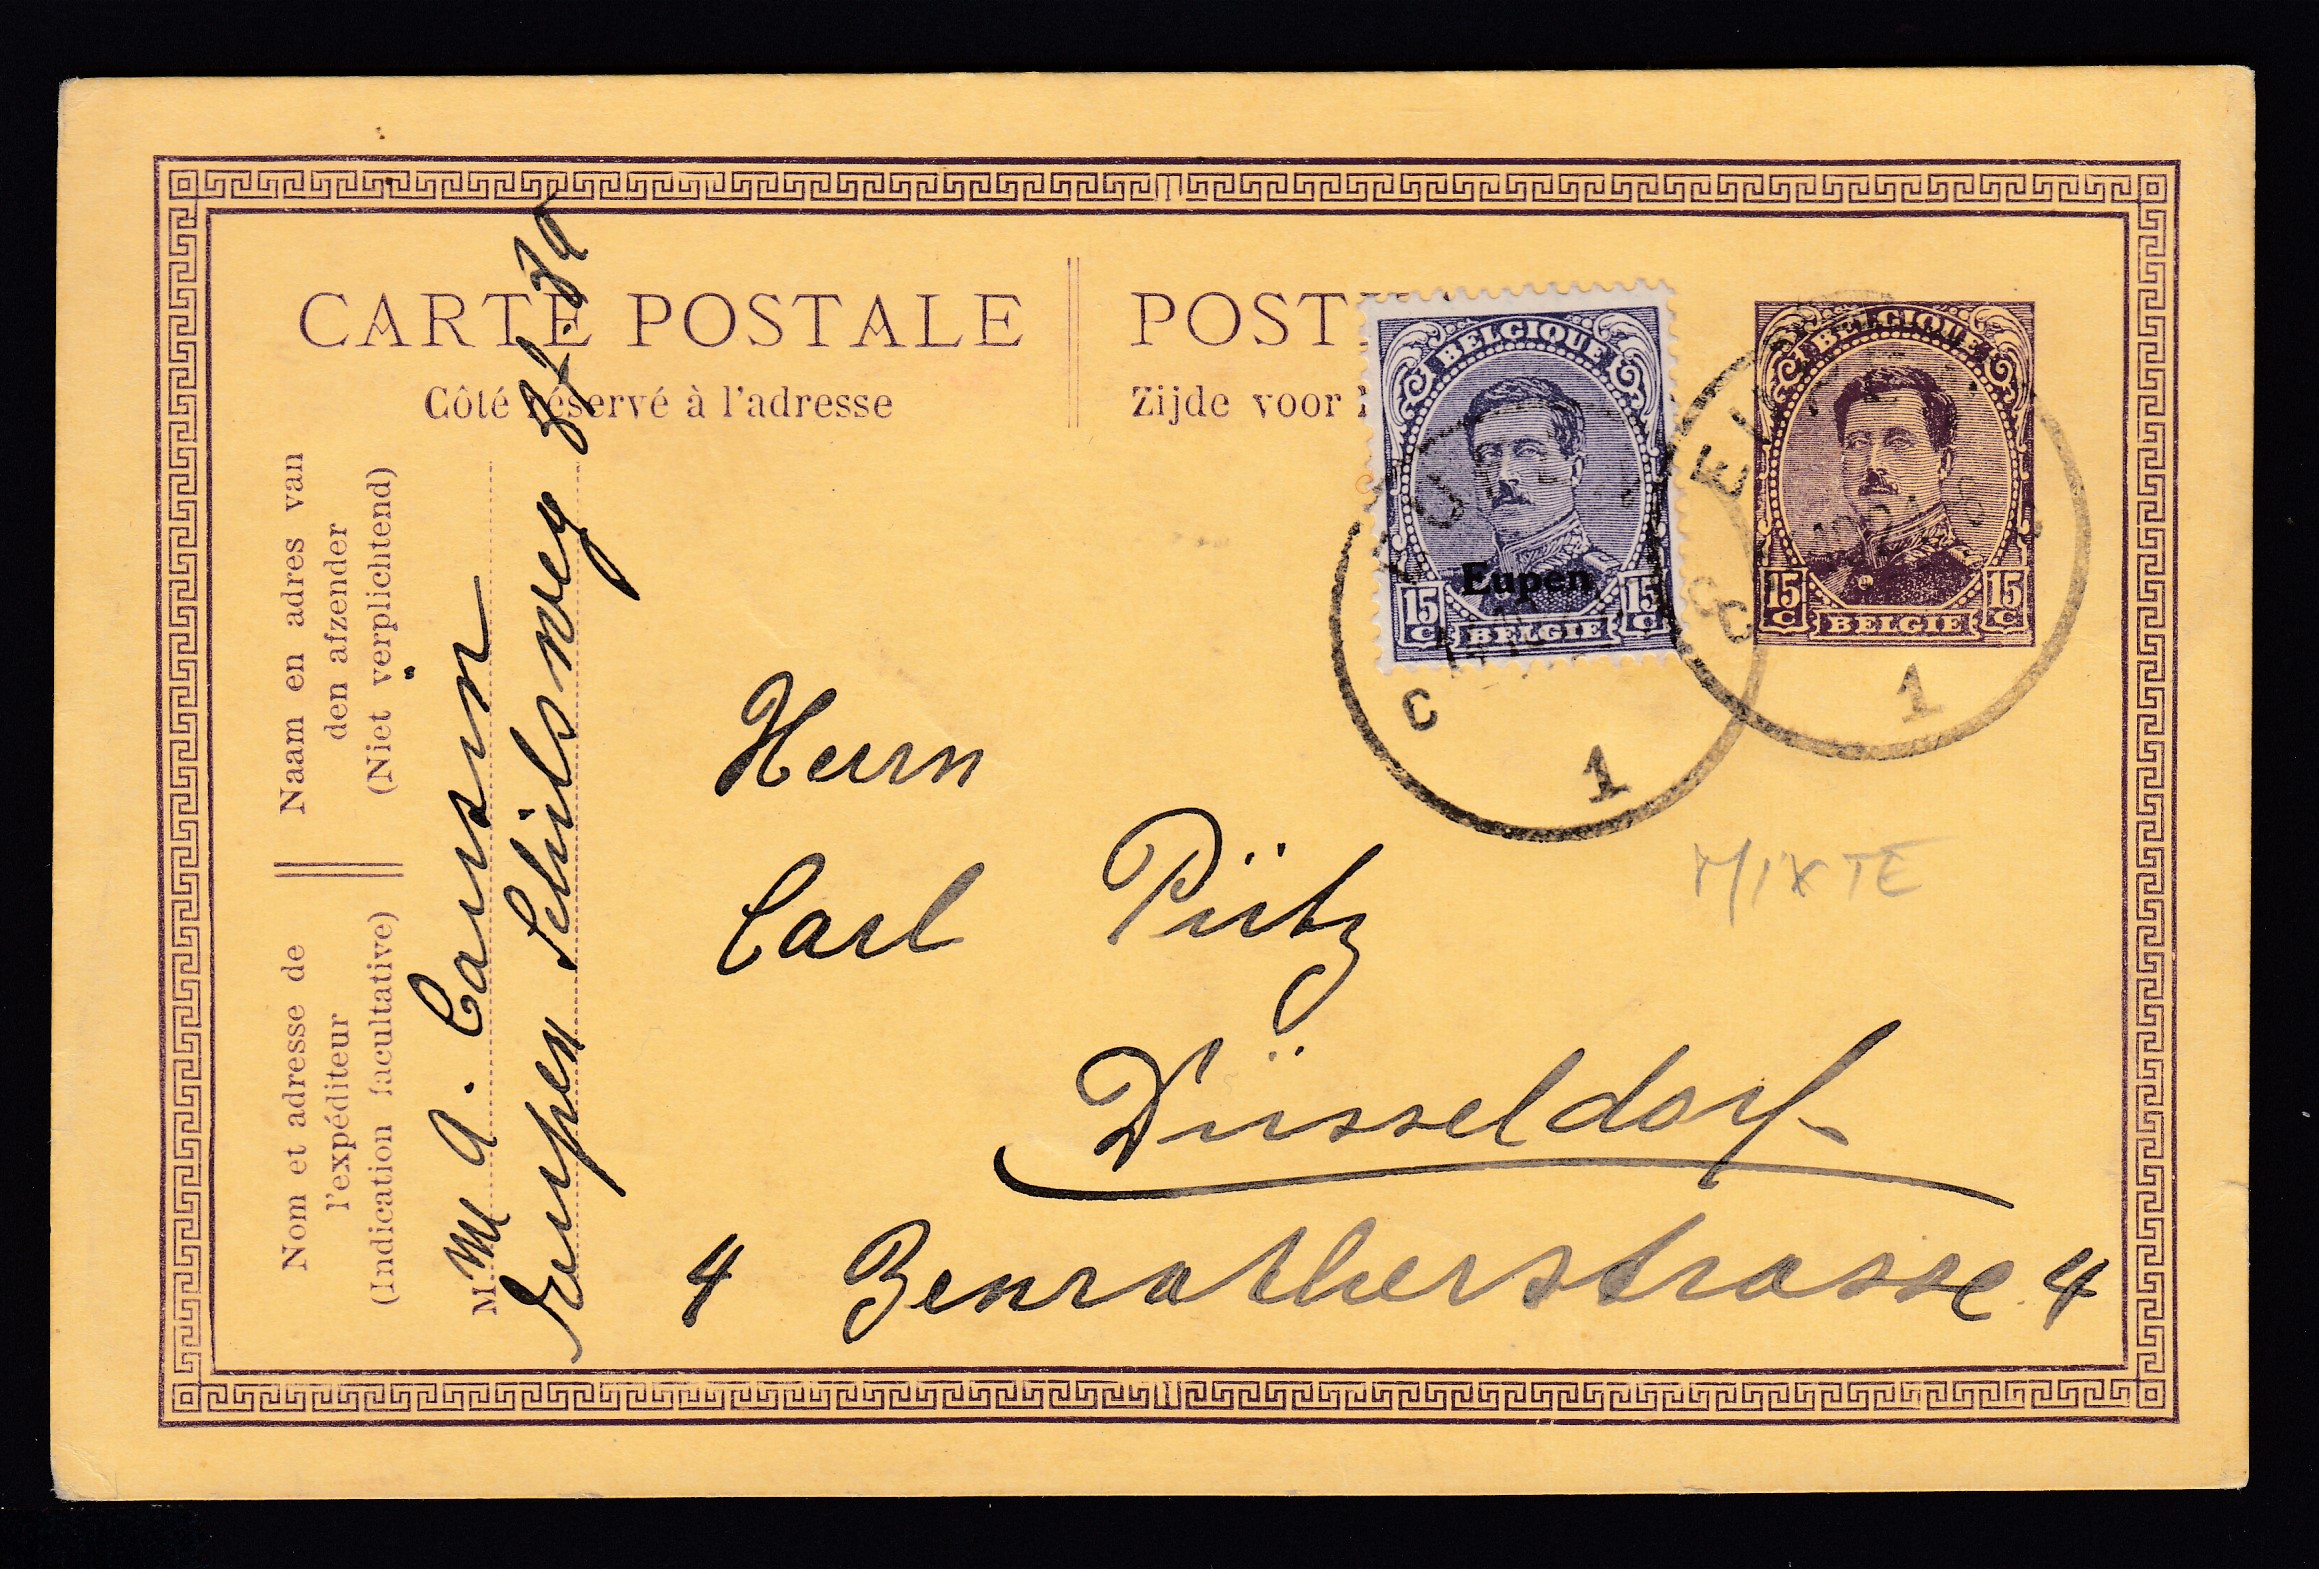 CARTE POSTALE
Côté réservé à l'adresse
POST
Zijde voor
BELGIQUE
Eupen
15 C BELGIE 15 C
BELGIQUE
15 C BELGIE 15 C
C 1
C 1
Naam en adres van
den afzender
(Niet verplichtend)
Nom et adresse de
l'expéditeur
(Indication facultative)
M
M A.
Eupen Schilsweg
MIXTE
Herrn
Carl Pütz
Düsseldorf
4 Benratherstrasse 4